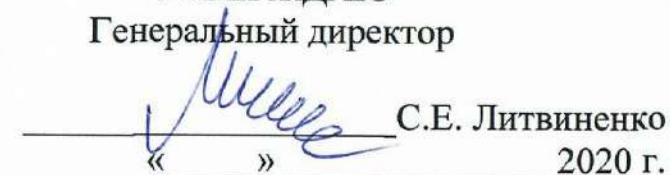 Генеральный директор
С.Е. Литвиненко
«          »                    2020 г.